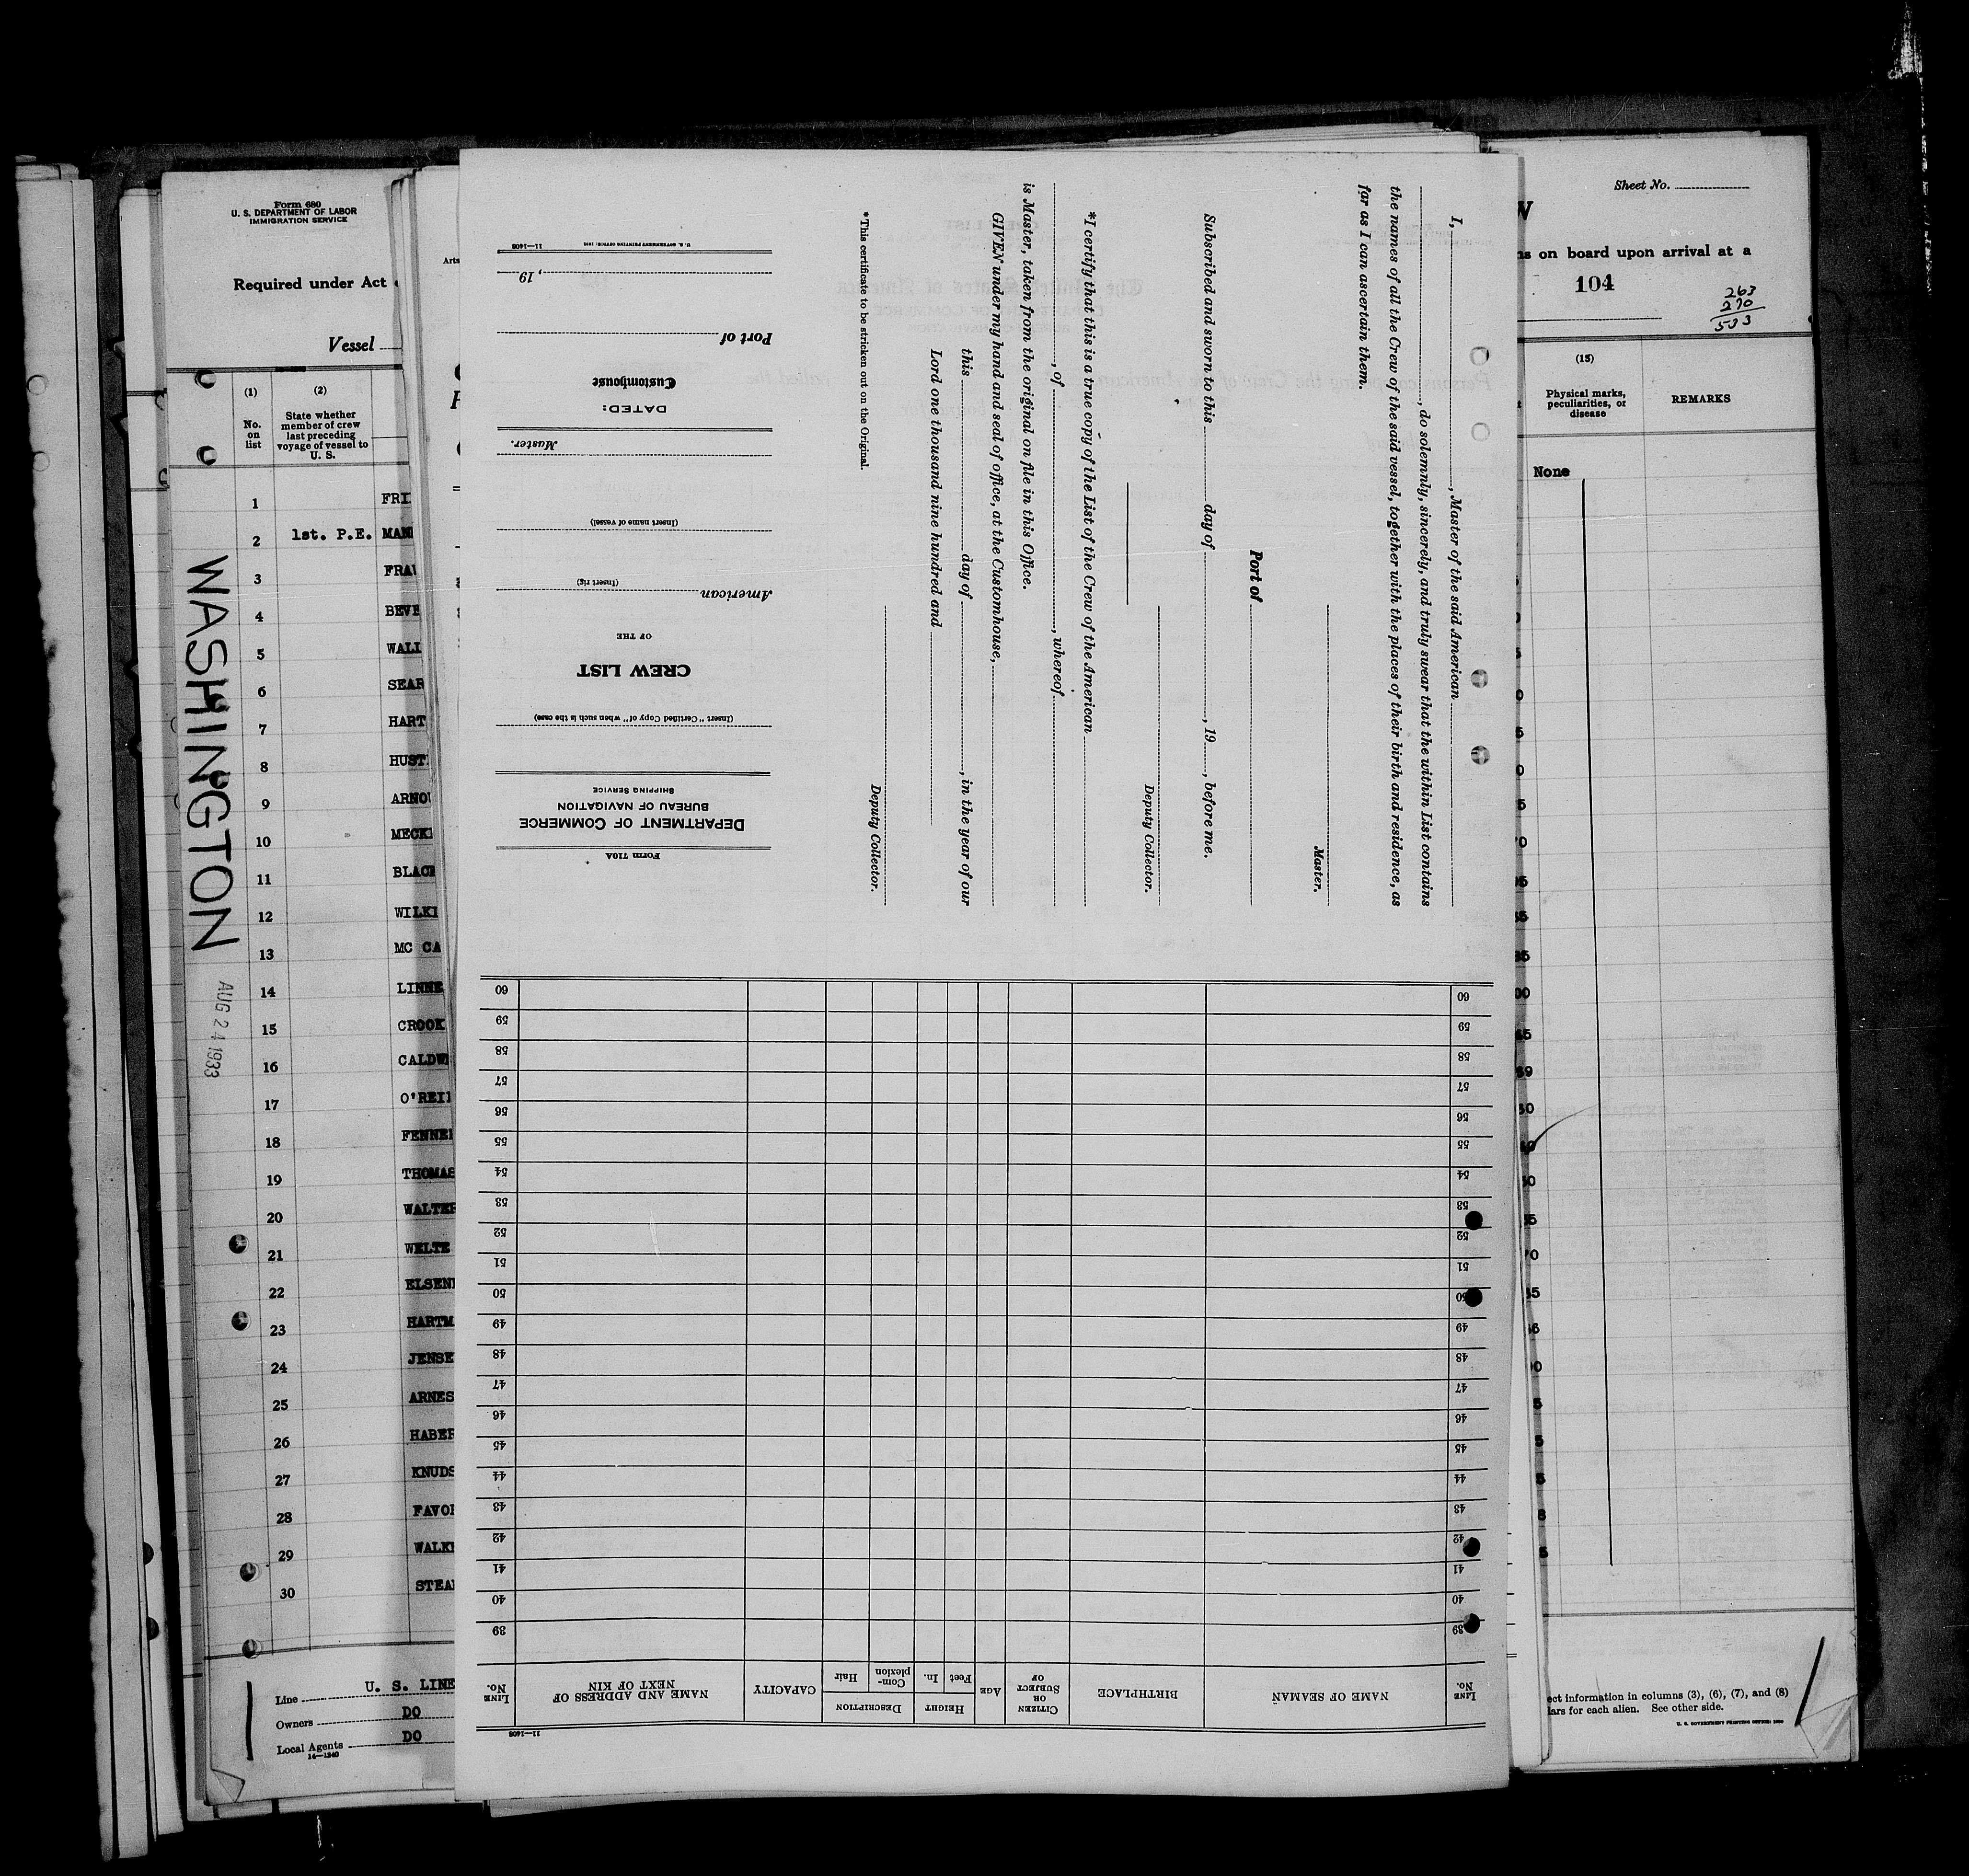 Form 680
U. S. DEPARTMENT OF LABOR
IMMIGRATION SERVICE
Required under Act
Vessel
(1)
No.
on
list
(2)
State whether
member of crew
last preceding
voyage of vessel to
U. S.
1 FRI
2 1st. P.E. MAN
3 FRA
4 BEVE
5 WALI
6 SEAR
7 HART
8 HUST
9 ARNO
10 MECK
11 BLAC
12 WILKI
13 MC CA
14 LINNE
15 CROOK
16 CALDW
17 O'REI
18 FENNE
19 THOMAS
20 WALTER
21 WELTE
22 ELSEN
23 HARTM
24 JENSE
25 ARNES
26 HABER
27 KNUDS
28 FAVO
29 WALK
30 STEA
WASHINGTON
AUG 24 1933
Line U. S. LINE
Owners DO
Local Agents DO
14—1240
Arts
I, , Master of the said American
, do solemnly, sincerely, and truly swear that the within List contains
the names of all the Crew of the said vessel, together with the places of their birth and residence, as
far as I can ascertain them.
Master.
Port of
Subscribed and sworn to this day of , 19 , before me.
Deputy Collector.
*I certify that this is a true copy of the List of the Crew of the American
, of , whereof
is Master, taken from the original on file in this Office.
GIVEN under my hand and seal of office, at the Customhouse,
this day of , in the year of our
Lord one thousand nine hundred and
Deputy Collector.
*This certificate to be stricken out on the Original.
Form 710A
DEPARTMENT OF COMMERCE
BUREAU OF NAVIGATION
SHIPPING SERVICE
(Insert "Certified Copy of" when such is the case)
CREW LIST
OF THE
American
(Insert rig)
(Insert name of vessel)
Master.
DATED:
Customhouse
Port of
, 19
11—1408
LINE
No.
NAME OF SEAMAN
BIRTHPLACE
CITIZEN
OR
SUBJECT
OF
AGE
HEIGHT
Feet
In.
DESCRIPTION
Com-
plexion
Hair
CAPACITY
NAME AND ADDRESS OF
NEXT OF KIN
LINE
No.
39 39
40 40
41 41
42 42
43 43
44 44
45 45
46 46
47 47
48 48
49 49
50 50
51 51
52 52
53 53
54 54
55 55
56 56
57 57
58 58
59 59
60 60
11—1408
Sheet No.
W
on board upon arrival at a
104
263
270
533
(15)
Physical marks,
peculiarities, or
disease
REMARKS
None
ect information in columns (3), (6), (7), and (8)
lars for each alien. See other side.
U. S. GOVERNMENT PRINTING OFFICE: